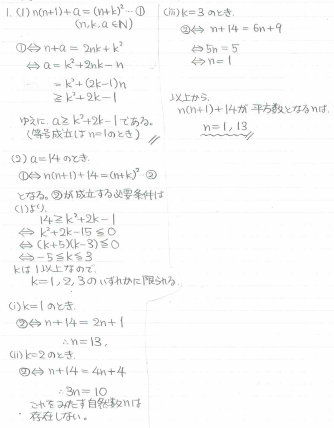 1. (1) n(n+1)+a=(n+k)² … ①
(n, k, a ∈ N)
①⇔ n+a = 2nk+k²
⇔ a = k²+2nk-n
= k²+(2k-1)n
≧ k²+2k-1
ゆえに a≧k²+2k-1である。
(等号成立は n=1のとき)
(2) a=14のとき.
①⇔n(n+1)+14=(n+k)² … ②
となる。②が成立する必要条件は
(1)より.
14≧k²+2k-1
⇔ k²+2k-15≦0
⇔ (k+5)(k-3)≦0
⇔ -5≦k≦3
kは1以上なので.
k=1, 2, 3のいずれかに限られる.
(i) k=1のとき.
②⇔ n+14=2n+1
∴n=13.
(ii) k=2のとき.
②⇔ n+14=4n+4
∴3n=10
これをみたす自然数nは
存在しない。
(iii) k=3のとき.
②⇔ n+14=6n+9
⇔ 5n=5
⇔ n=1
以上から.
n(n+1)+14が平方数となるnは.
n=1, 13